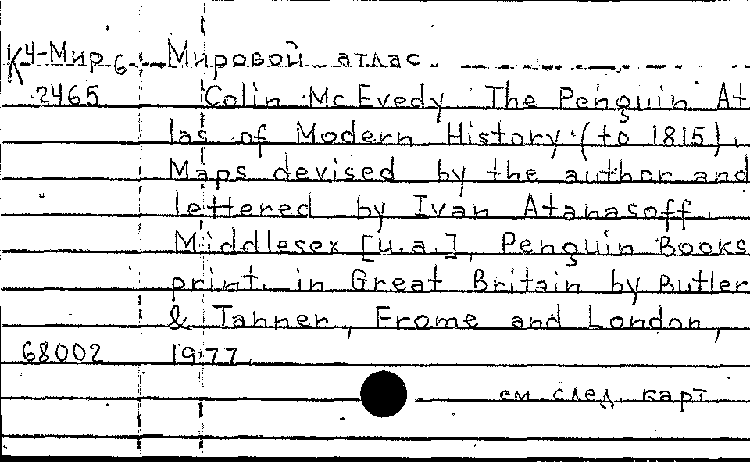 К4-Мир 6 Мировой атлас.
2465 Colin McEvedy The Penguin At
las of Modern History (to 1815).
Maps devised by the author and
lettered by Ivan Atanasoff.
Middlesex [u.a.], Penguin Books
print. in Great Britain by Butler
& Tanner, Frome and London,
68002 1977.
см. след. карт.